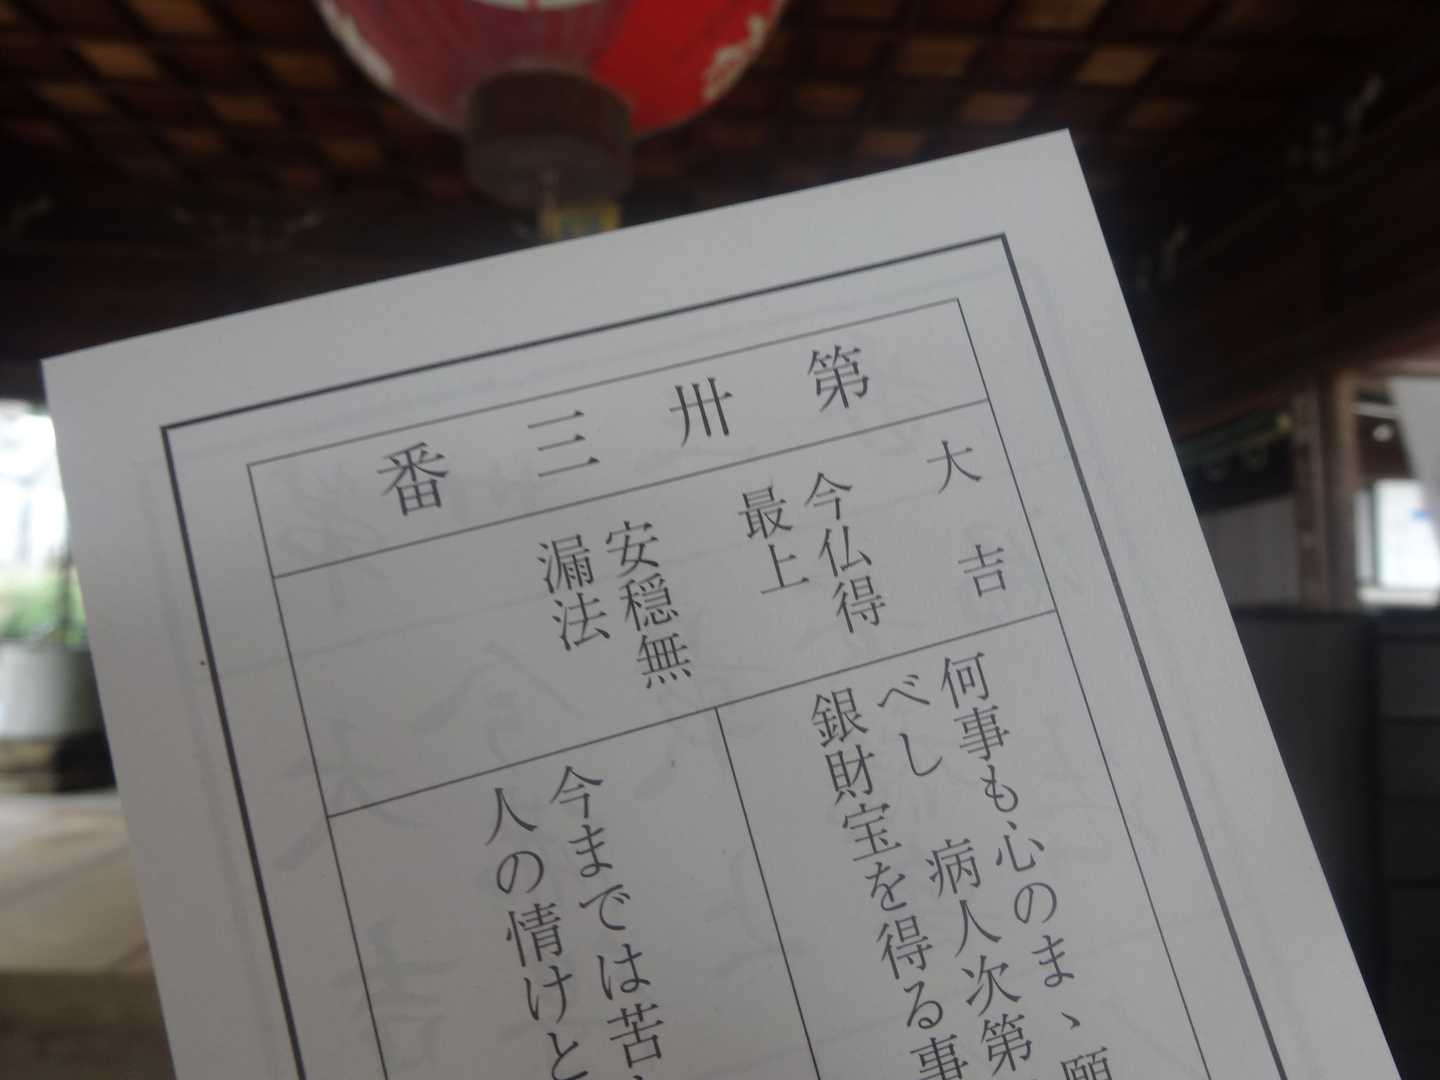 第卅三番
大吉
今仏得
最上
安穏無
漏法
何事も心のまゝ願
べし　病人次第
銀財宝を得る事
今までは苦
人の情けと